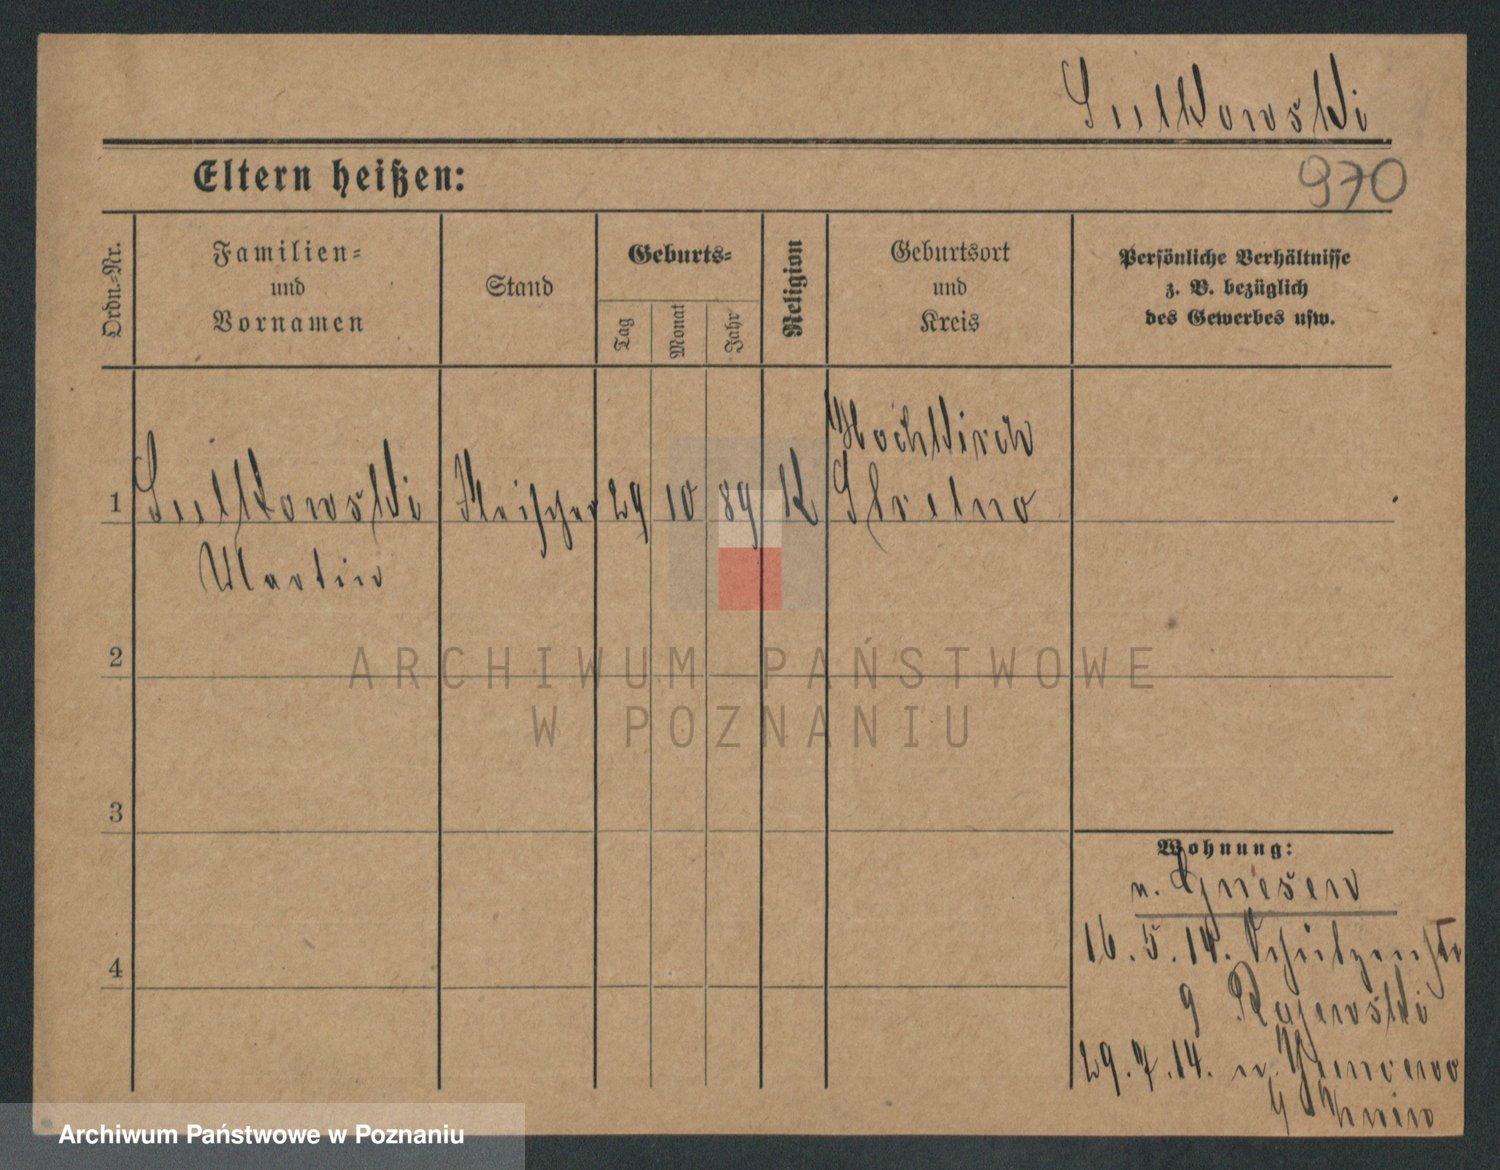 Sulkowski
Eltern heißen:
970
Ordn.-Nr.
Familien-
und
Vornamen
Stand
Geburts-
Tag
Monat
Jahr
Religion
Geburtsort
und
Kreis
Persönliche Verhältnisse
z. B. bezüglich
des Gewerbes usw.
Hochkirch
1 Sulkowski Fleischer 29 10 89 K Strelno
Martin
2
ARCHIWUM PAŃSTWOWE
W POZNANIU
3
Wohnung:
n. Gnesen
16. 5. 14. Schützenstr
4
9 Rajewski
29. 7. 14. n.
Znin
Archiwum Państwowe w Poznaniu